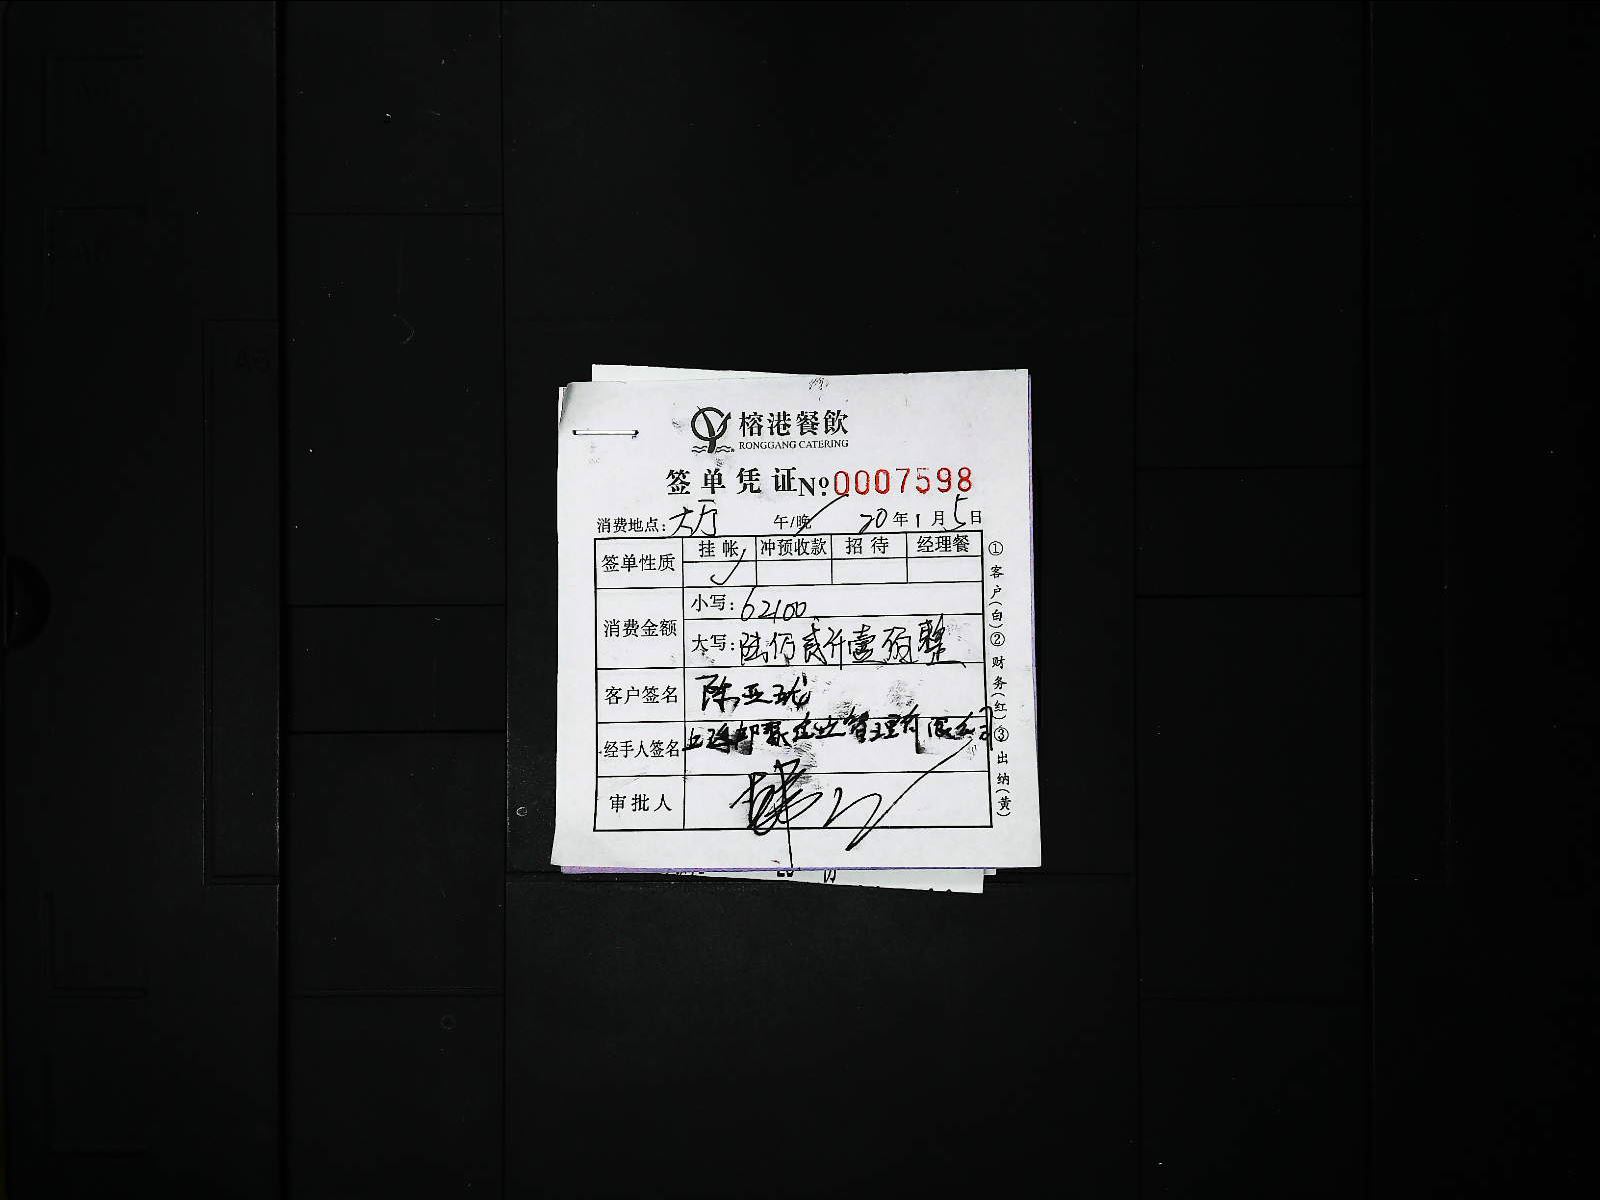 榕港餐飲
RONGGANG CATERING
签单凭证№0007598
消费地点:大厅 午/晚 20年1月5日
签单性质 挂帐 冲预收款 招待 经理餐
消费金额 小写:62100
大写:陆仟贰仟壹佰整
客户签名 陈亚
经手人签名 企业管理有限公司
审批人
①客户(白)②财务(红)③出纳(黄)